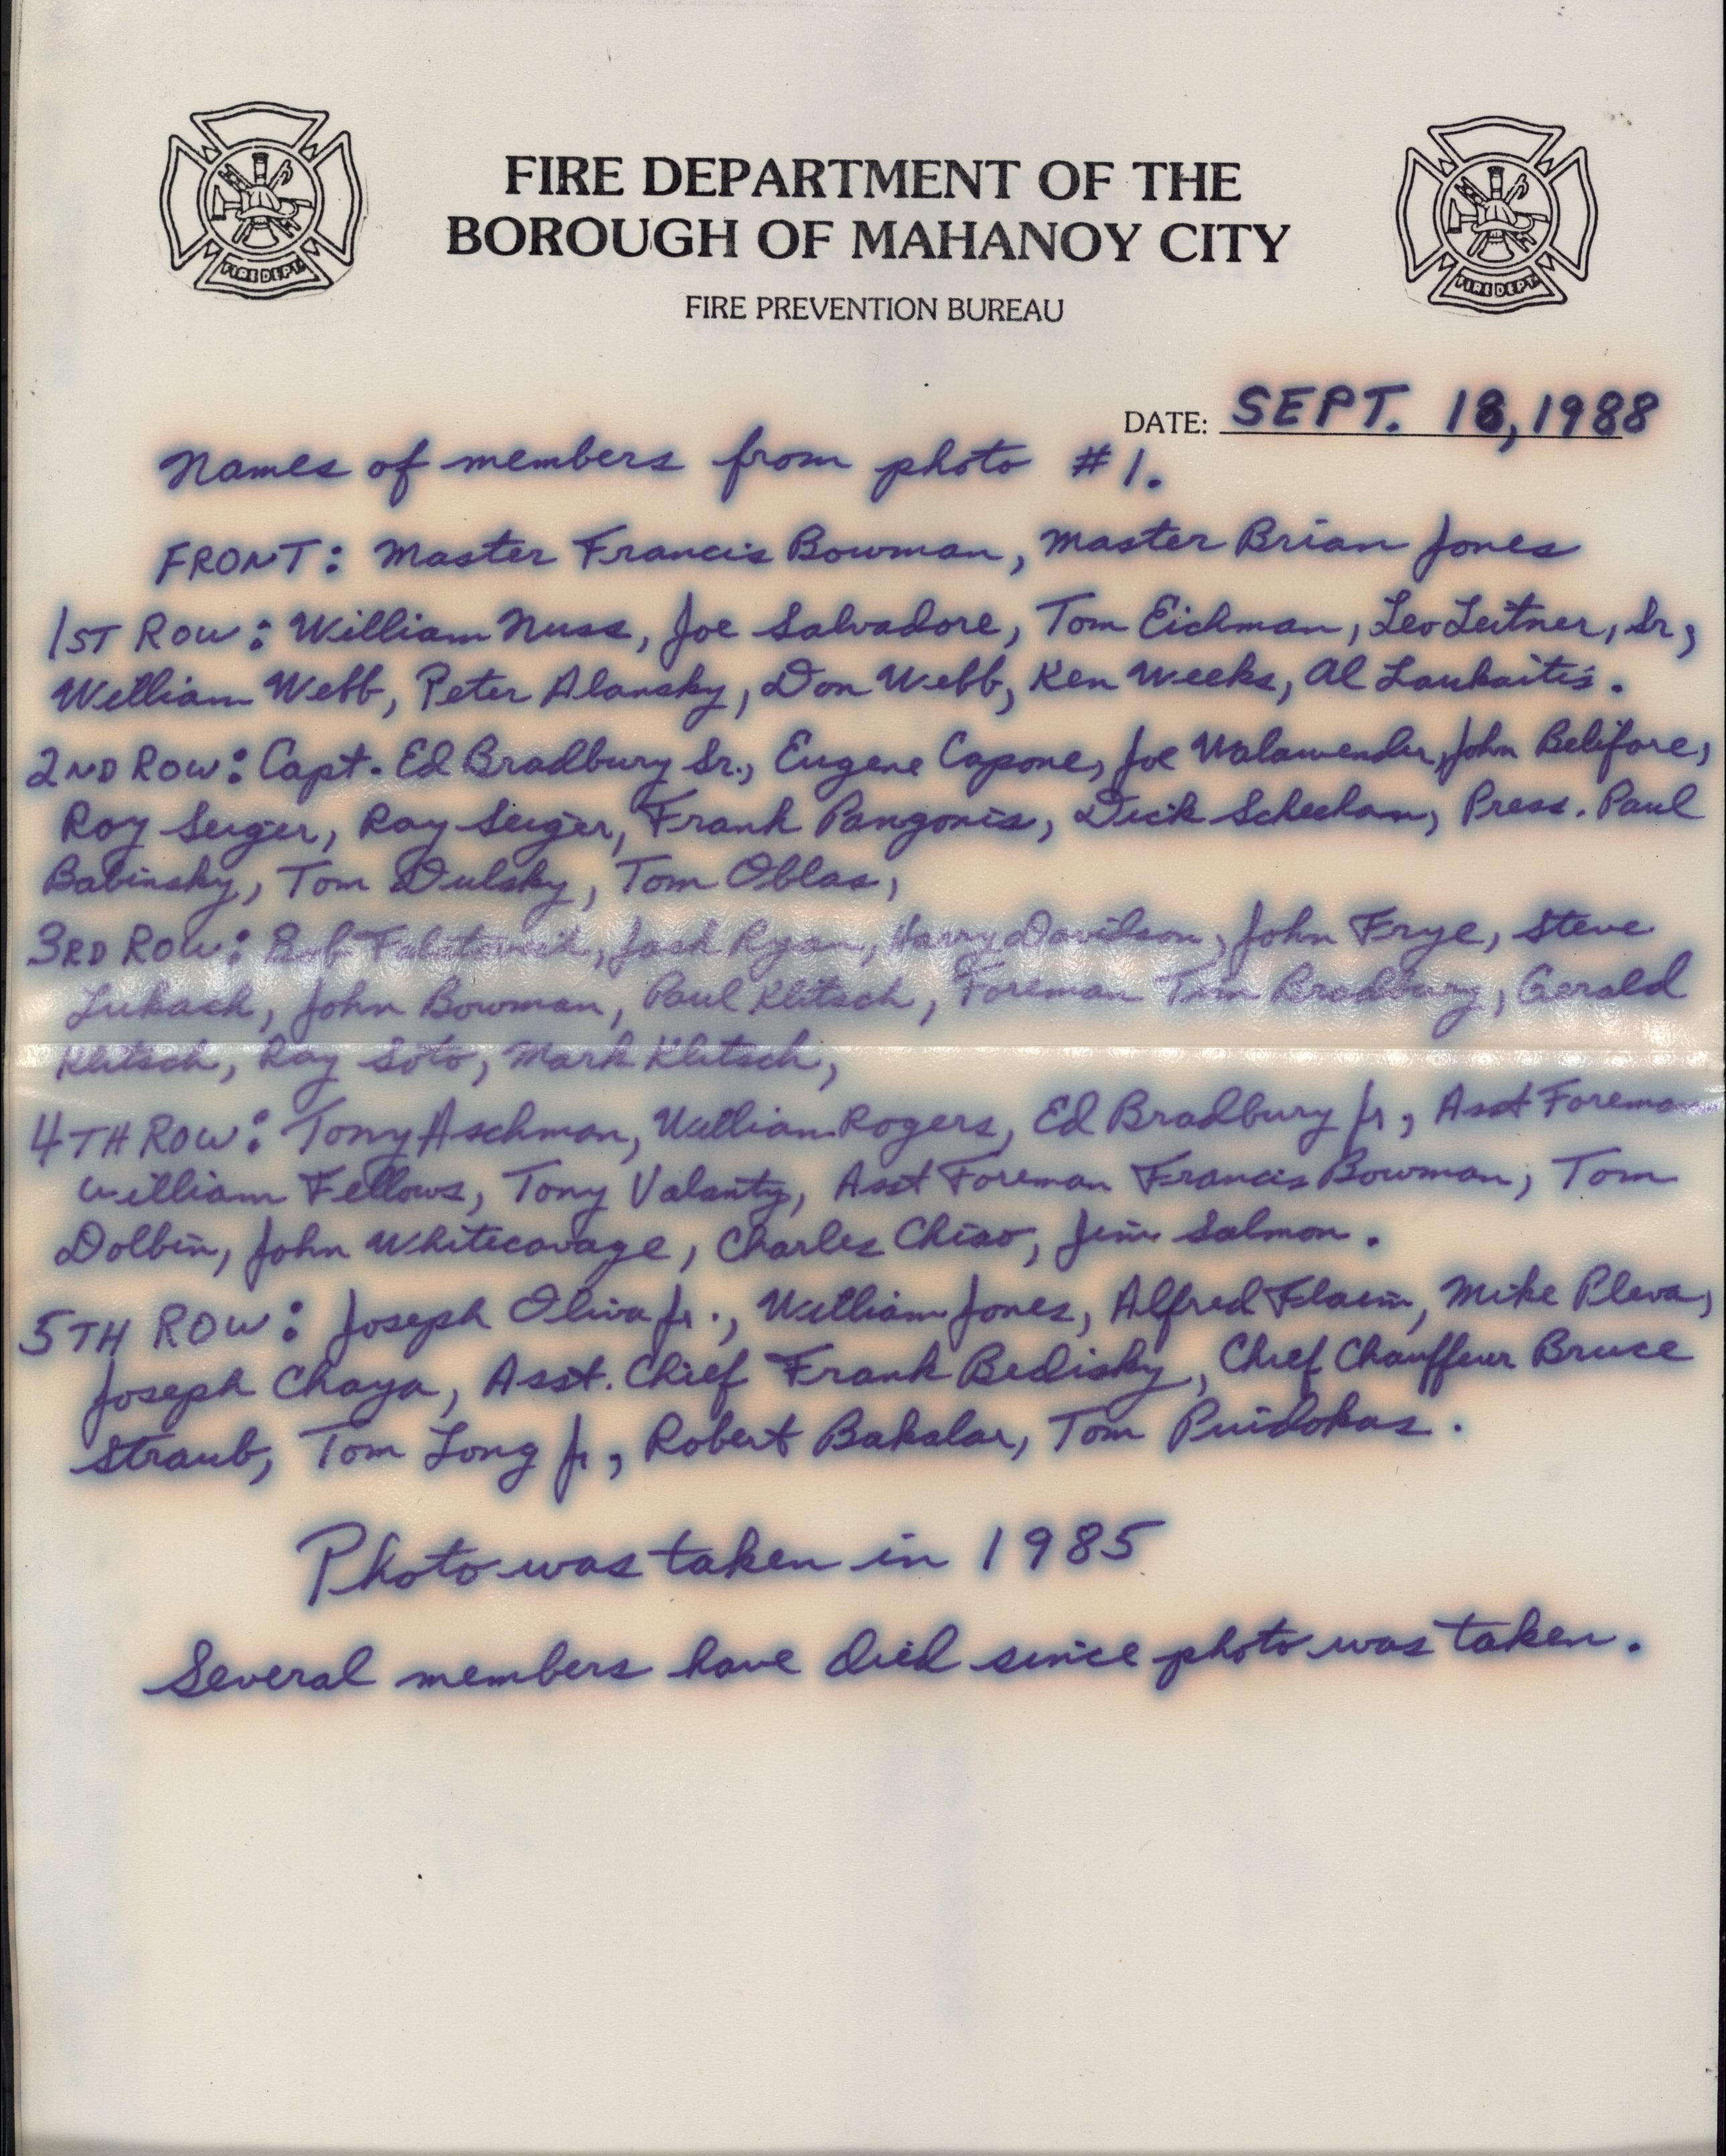 FIRE DEPARTMENT OF THE
BOROUGH OF MAHANOY CITY
FIRE PREVENTION BUREAU
FIRE DEPT.
FIRE DEPT.
DATE: SEPT. 18, 1988
Names of members from photo #1.
FRONT: Master Francis Bowman, Master Brian Jones
1ST ROW: William Nuss, Joe Salvadore, Tom Eichman, Leo Leitner, Sr,
William Webb, Peter Alansky, Don Webb, Ken Weeks, Al Laukaitis.
2ND ROW: Capt. Ed Bradbury Sr., Eugene Capone, Joe Walawender, John Belifore,
Roy Seiger, Ray Seiger, Frank Pangonis, Dick Scheeham, Press. Paul
Babinsky, Tom Dulsky, Tom Oblas,
3RD ROW: Bob Jack Ryan, Harry Davilson, John Frye, Steve
Lukach, John Bowman, Paul Klitsch, Foreman Tom Bradbury, Gerald
Klitsch, Ray Soto, Mark Klitsch,
4TH ROW: Tony Aschman, William Rogers, Ed Bradbury Jr, Asst Foreman
William Fellows, Tony Valanty, Asst Foreman Francis Bowman, Tom
Dolbin, John Whitecavage, Charles Chiao, Jim Salmon.
5TH ROW: Joseph Oliva Jr., William Jones, Alfred Flaim, Mike Pleva,
Joseph Chaya, Asst. Chief Frank Bedisky, Chief Chauffeur Bruce
Straub, Tom Long Jr, Robert Bakalar, Tom Puidokas.
Photo was taken in 1985
Several members have died since photo was taken.